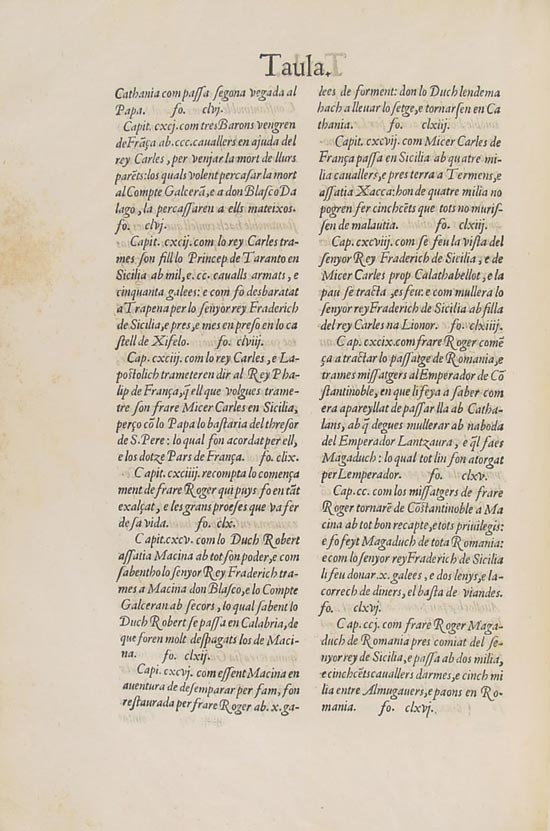 Taula.
Cathania com passa segona vegada al
Papa. fo. clvj.
Capit. cxcj. com tres Barons vengren
de Frãça ab. ccc. cauallers en ajuda del
rey Carles, per venjar la mort de llurs
parẽts: los quals volent percasar la mort
al Compte Galcerã, e a don Blasco Da
lago, la percassaren a ells mateixos.
fo. clvj.
Capit. cxcij. com lo rey Carles tra-
mes son fill lo Princep de Taranto en
Sicilia ab mil, e. cc. caualls armats, e
cinquanta galees: e com fo desbaratat
a Trapena per lo senyor rey Fraderich
de Sicilia, e pres, e mes en preso en lo ca
stell de Xifelo. fo. clviij.
Cap. cxciij. com lo rey Carles, e La-
postolich trameteren dir al Rey Pha-
lip de França, q̃ ell que volgues trame-
tre son frare Micer Carles en Sicilia,
perço cõ lo Papa lo bastaria del thresor
de S. Pere: lo qual fon acordat per ell,
e los dotze Pars de França. fo. clix.
Capit. cxciiij. recompta lo comença
ment de frare Roger qui puys fo en tãt
exalçat, e les grans proeses que va fer
de sa vida. fo. clx.
Capit. cxcv. com lo Duch Robert
assatia Macina ab tot son poder, e com
sabentho lo senyor Rey Fraderich tra-
mes a Macina don Blasco, e lo Compte
Galceran ab secors, lo qual sabent lo
Duch Robert se passa en Calabria, de
que foren molt despagats los de Maci-
na. fo. clxij.
Capi. cxcvj. com essent Macina en
auentura de desemparar per fam, fon
restaurada per frare Roger ab. x. ga-
lees de forment: don lo Duch lendema
hach a lleuar lo setge, e tornarsen en Ca
thania. fo. clxiij.
Capit. cxcvij. com Micer Carles de
França passa en Sicilia ab quatre mi-
lia cauallers, e pres terra a Termens, e
assatia Xacca: hon de quatre milia no
pogren fer cinchcẽts que tots no muris-
sen de malautia. fo. clxiij.
Cap. cxcviij. com se feu la vista del
senyor Rey Fraderich de Sicilia, e de
Micer Carles prop Calathabellot, e la
pau se tracta, es feu: e com mullera lo
senyor rey Fraderich de Sicilia ab filla
del rey Carles na Lionor. fo. clxiiij.
Cap. cxcix. com frare Roger comẽ
ça a tractar lo passatge de Romania, e
trames missatgers al Emperador de Cõ
stantinoble, en que li feya a saber com
era apareyllat de passar lla ab Catha-
lans, ab q̃ degues mullerar ab naboda
del Emperador Lantzaura, e q̃l faes
Magaduch: lo qual tot lin fon atorgat
per Lemperador. fo. clxv.
Cap. cc. com los missatgers de frare
Roger tornarẽ de Cõstantinoble a Ma
cina ab tot bon recapte, e tots priuilegis:
e fo feyt Magaduch de tota Romania:
e com lo senyor rey Fraderich de Sicilia
li feu donar. x. galees, e dos lenys, e la-
correch de diners, el basta de viandes.
fo. clxvj.
Cap. ccj. com frare Roger Maga-
duch de Romania pres comiat del se-
nyor rey de Sicilia, e passa ab dos milia,
e cinchcẽts cauallers darmes, e cinch mi
lia entre Almugauers, e paons en Ro-
mania. fo. clxvj.